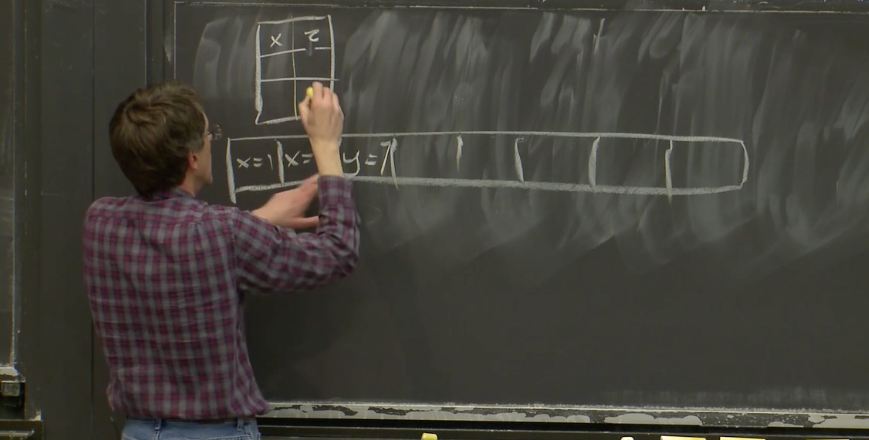 x 2
x=1 x= y=7